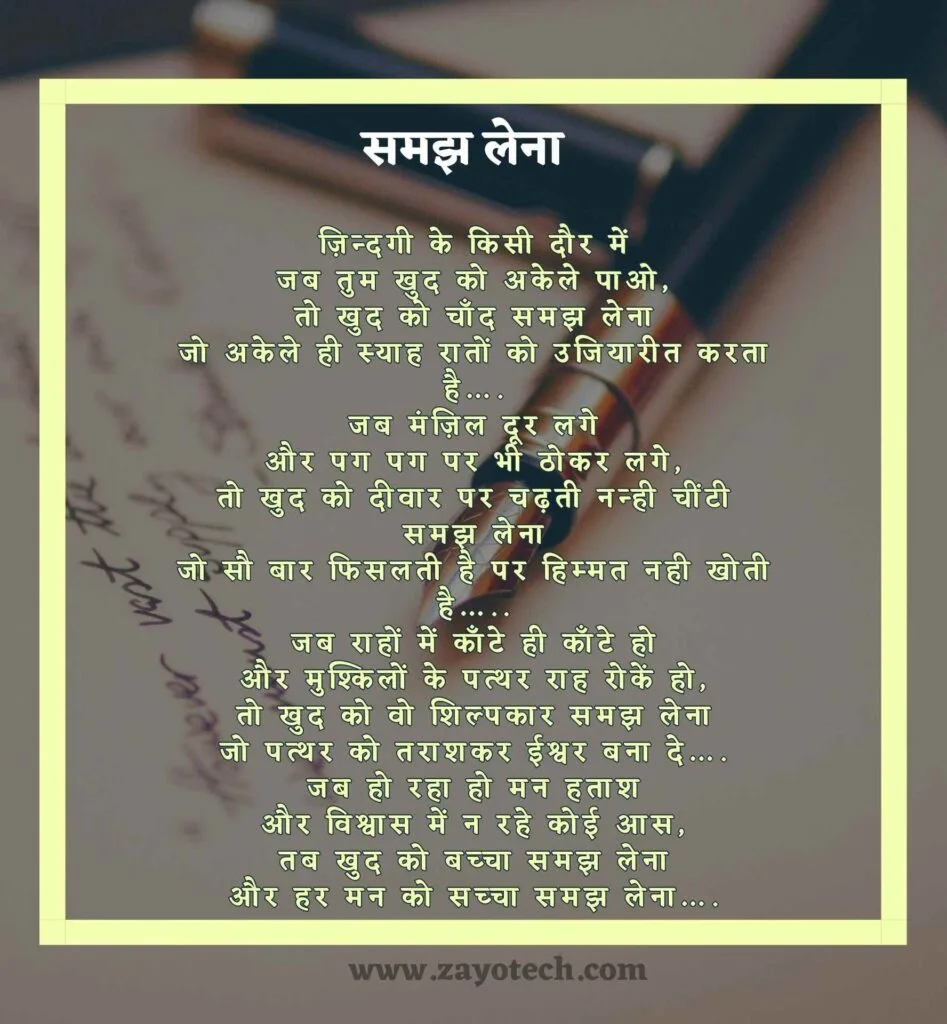 समझ लेना
ज़िन्दगी के किसी दौर में
जब तुम खुद को अकेले पाओ,
तो खुद को चाँद समझ लेना
जो अकेले ही स्याह रातों को उजियारीत करता
है....
जब मंज़िल दूर लगे
और पग पग पर भी ठोकर लगे,
तो खुद को दीवार पर चढ़ती नन्ही चींटी
समझ लेना
जो सौ बार फिसलती है पर हिम्मत नही खोती
है.....
जब राहों में काँटे ही काँटे हो
और मुश्किलों के पत्थर राह रोकें हो,
तो खुद को वो शिल्पकार समझ लेना
जो पत्थर को तराशकर ईश्वर बना दे....
जब हो रहा हो मन हताश
और विश्वास में न रहे कोई आस,
तब खुद को बच्चा समझ लेना
और हर मन को सच्चा समझ लेना....
www.zayotech.com